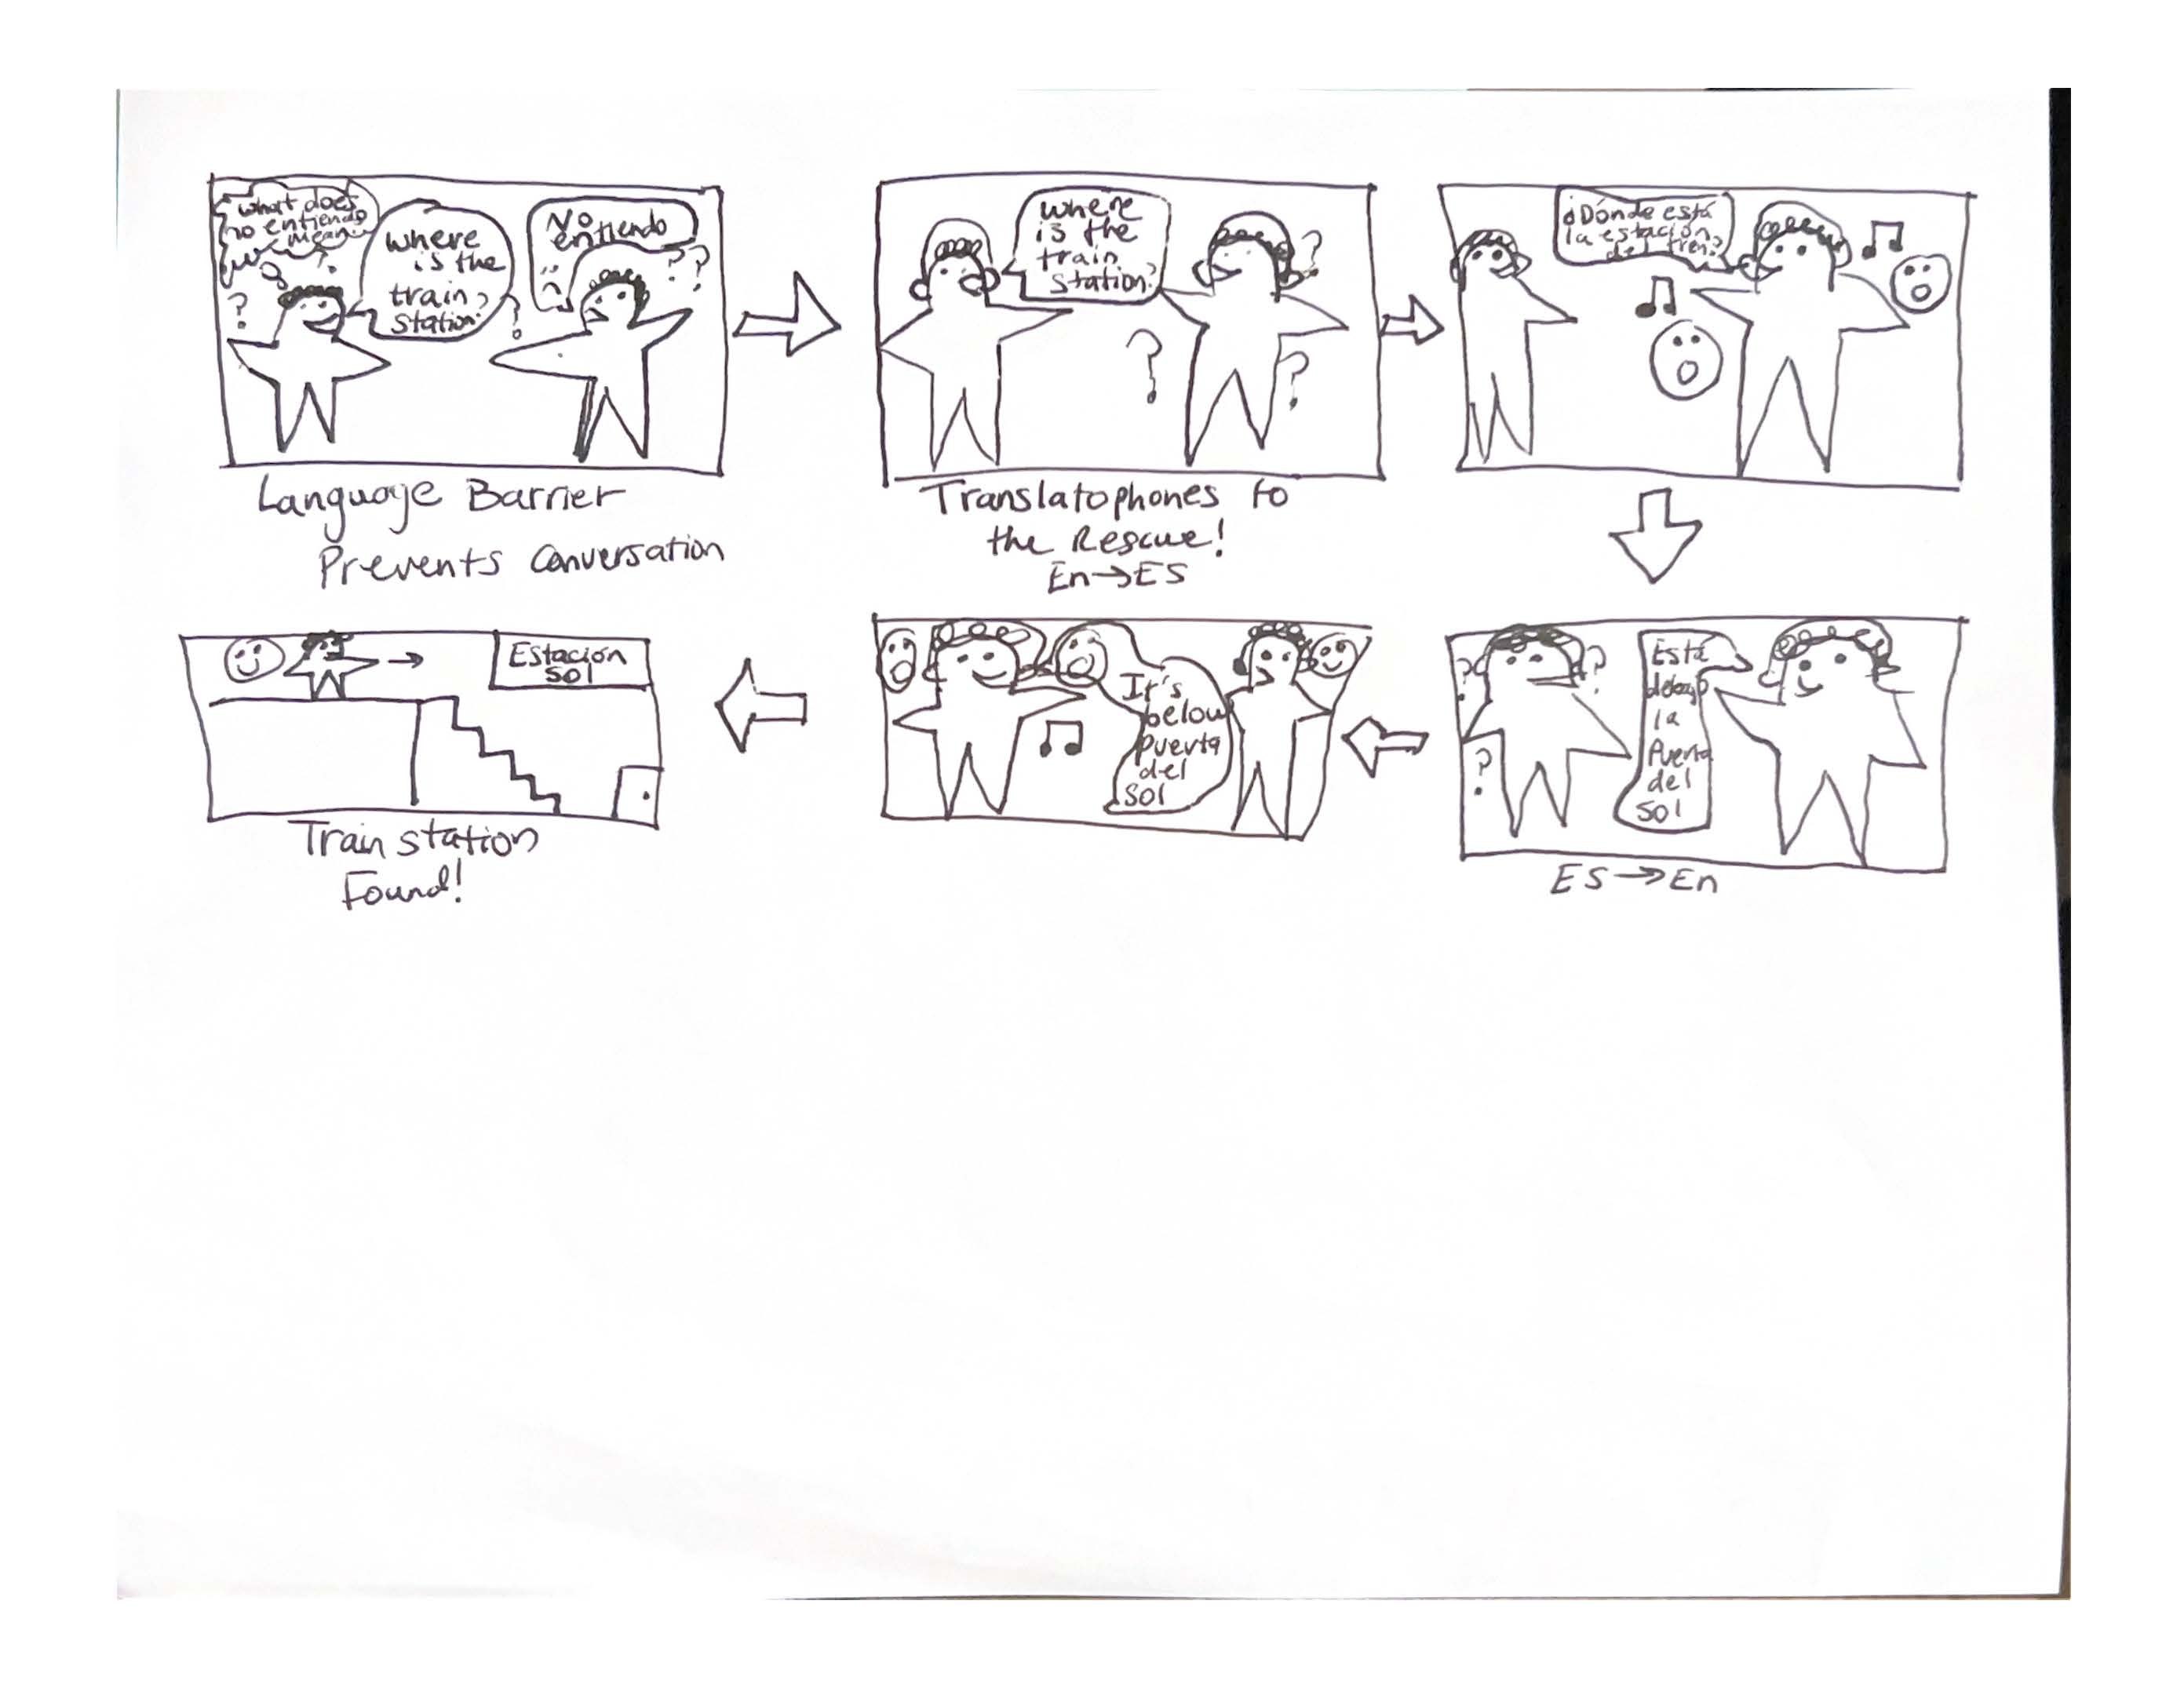 What does
no entiendo
mean..
?
where
is the
train
station?
No
entiendo
? ?
?
?
Language Barrier
Prevents Conversation
where
is the
train
station?
?
?
?
Translatophones to
the Rescue!
En→ES
¿Dónde está
la estación
del tren?
Está
debajo
la
Puerta
del
Sol
?
?
?
ES→En
It's
below
Puerta
del
Sol
Estación
Sol
Train station
Found!